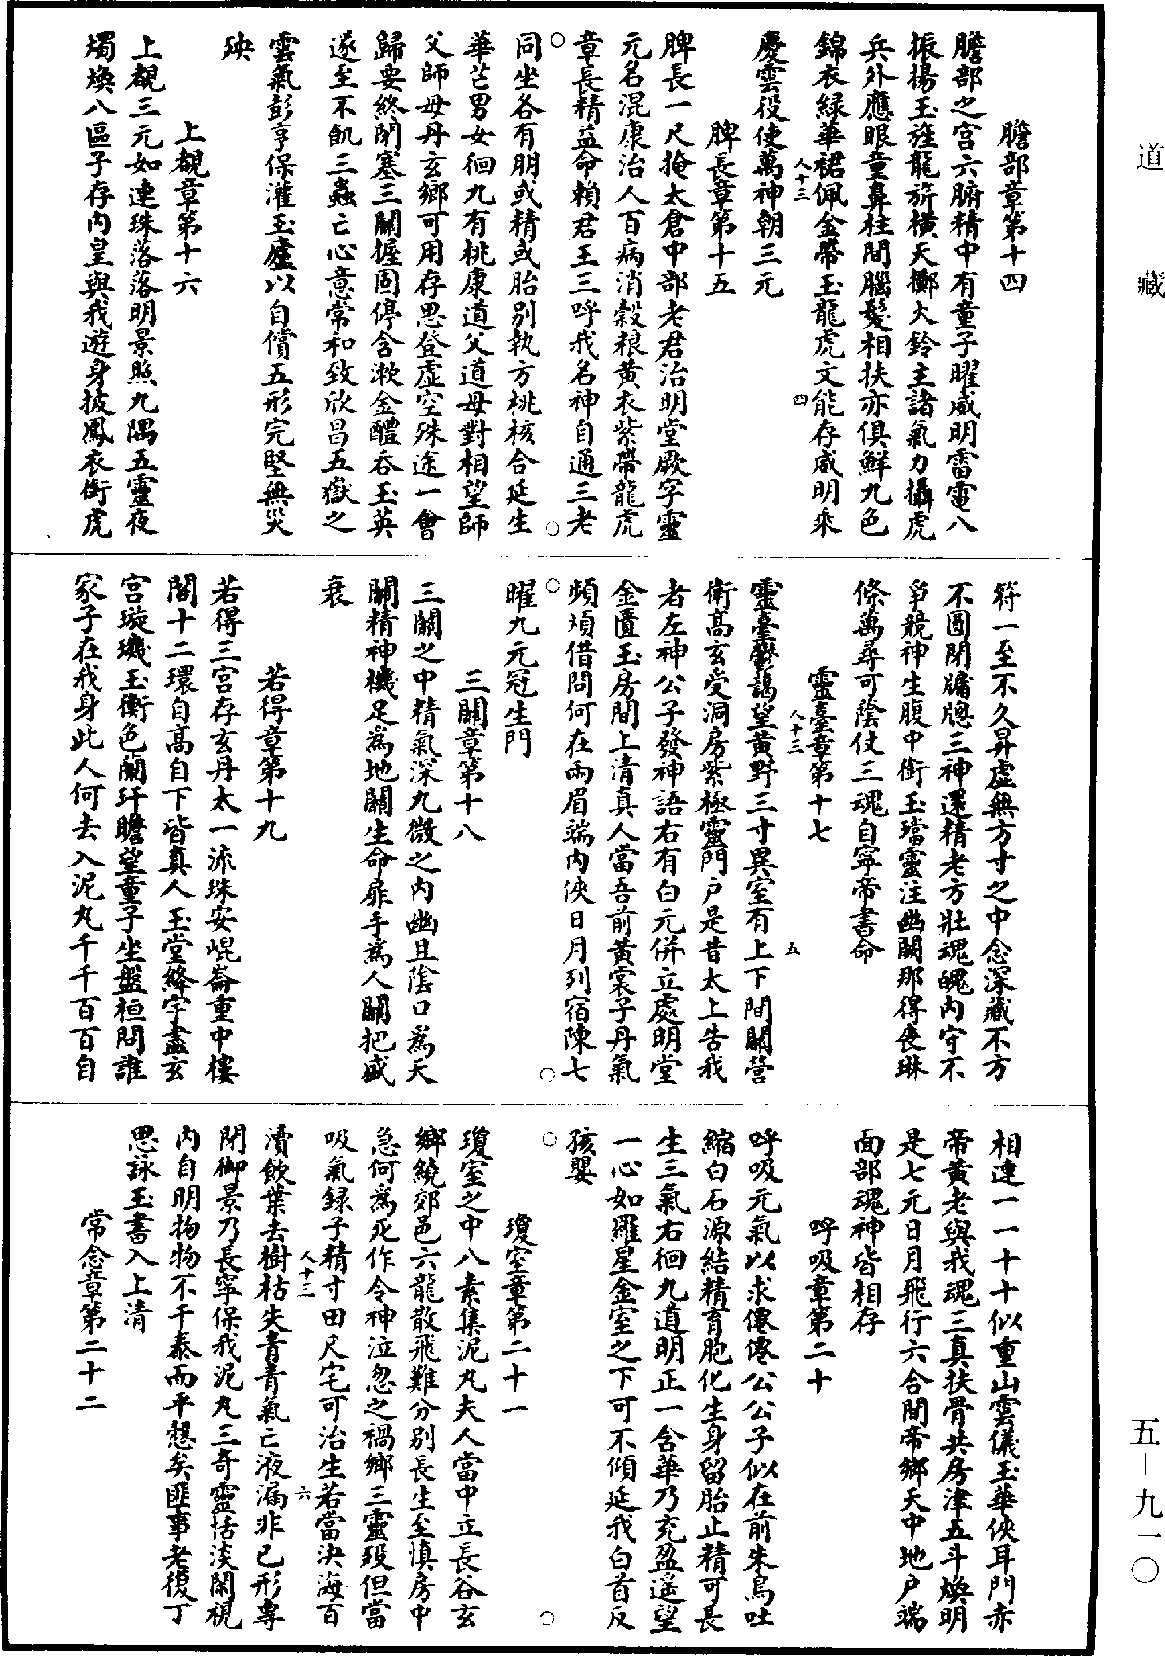 道藏
五—九一〇
膽部章第十四
膽部之宮六腑精中有童子曜威明雷電八
振揚玉旌龍旂橫天擲火鈴主諸氣力攝虎
兵外應眼童鼻柱間腦髮相扶亦俱鮮九色
錦衣綠華裙佩金帶玉龍虎文能存威明乘
慶雲役使萬神朝三元
人十三
四
脾長章第十五
脾長一尺掩太倉中部老君治明堂厥字靈
元名混康治人百病消穀粮黃衣紫帶龍虎
章長精益命賴君王三呼我名神自通三老
同坐各有朋或精或胎別執方桃核合延生
華芒男女徊九有桃康道父道母對相望師
父師母丹玄鄉可用存思登虛空殊途一會
歸要終閉塞三關握固停含漱金醴吞玉英
遂至不飢三蟲亡心意常和致欣昌五嶽之
雲氣彭亨保灌玉廬以自償五形完堅無災
殃
上覩章第十六
上覩三元如連珠落落明景照九隅五靈夜
燭煥八區子存內皇與我遊身披鳳衣銜虎
符一至不久昇虛無方寸之中念深藏不方
不圓閉牖牕三神還精老方壯魂魄內守不
爭競神生腹中銜玉璫靈注幽闕那得喪琳
條萬尋可陰仗三魂自寧帝書命
靈臺章第十七
人十三
五
靈臺鬱藹望黃野三寸異室有上下間關營
衛高玄受洞房紫極靈門户是昔太上告我
者左神公子發神語右有白元併立處明堂
金匱玉房間上清真人當吾前黃裳子丹氣
頻煩借問何在兩眉端內俠日月列宿陳七
曜九元冠生門
三關章第十八
三關之中精氣深九微之內幽且陰口為天
關精神機足為地關生命扉手為人關把盛
衰
若得章第十九
若得三宮存玄丹太一流珠安崐崙重中樓
閣十二環自高自下皆真人玉堂絳宇盡玄
宮璇璣玉衡色蘭玕瞻望童子坐盤桓問誰
家子在我身此人何去入泥丸千千百百自
相連一一十十似重山雲儀玉華俠耳門赤
帝黃老與我魂三真扶骨共房津五斗煥明
是七元日月飛行六合間帝鄉天中地户端
面部魂神皆相存
呼吸章第二十
呼吸元氣以求僊僊公公子似在前朱鳥吐
縮白石源結精育胞化生身留胎止精可長
生三氣右徊九道明正一含華乃充盈遥望
一心如羅星金室之下可不傾延我白首反
孩嬰
瓊室章第二十一
瓊室之中八素集泥丸夫人當中立長谷玄
鄉繞郊邑六龍散飛難分別長生至慎房中
急何為死作令神泣忽之禍鄉三靈殁但當
吸氣録子精寸田尺宅可治生若當決海百
人十三
六
瀆飲葉去樹枯失青青氣亡液漏非己形專
閉御景乃長寧保我泥丸三奇靈恬淡閑視
內自明物物不干泰而平愨矣匪事老復丁
思詠玉書入上清
常念章第二十二